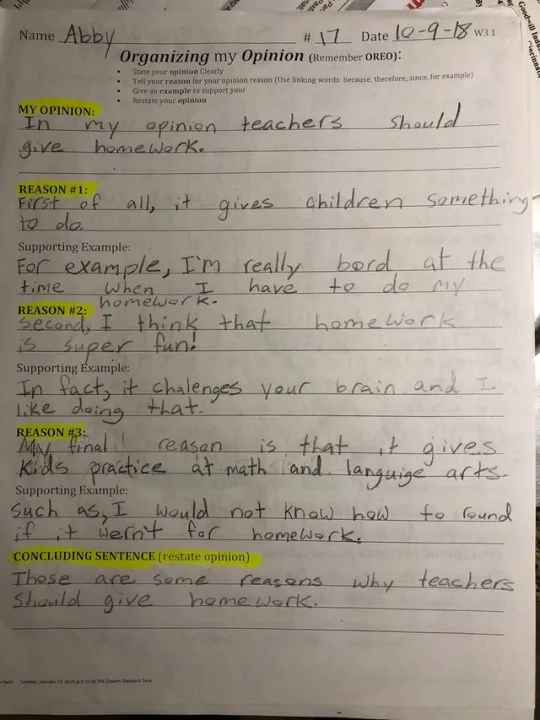 Name Abby # 17 Date 10-9-18 W3.1
Organizing my Opinion (Remember OREO):
• State your opinion Clearly
• Tell your reason for your opinion reason (Use linking words: because, therefore, since, for example)
• Give an example to support your
• Restate your opinion
MY OPINION:
In my opinion teachers should
give homework.
REASON #1:
First of all, it gives children something
to do.
Supporting Example:
For example, I'm really bord at the
time when I have to do my
homework.
REASON #2:
Second, I think that homework
is super fun!
Supporting Example:
In fact, it chalenges your brain and I
like doing that.
REASON #3:
My final reason is that it gives
kids practice at math and languige arts.
Supporting Example:
Such as, I would not know how to round
if it wern't for homework.
CONCLUDING SENTENCE (restate opinion)
Those are some reasons why teachers
should give homework.
Tuesday, January 13, 2015 at 2:16:46 PM Eastern Standard Time
Goodwill Indu